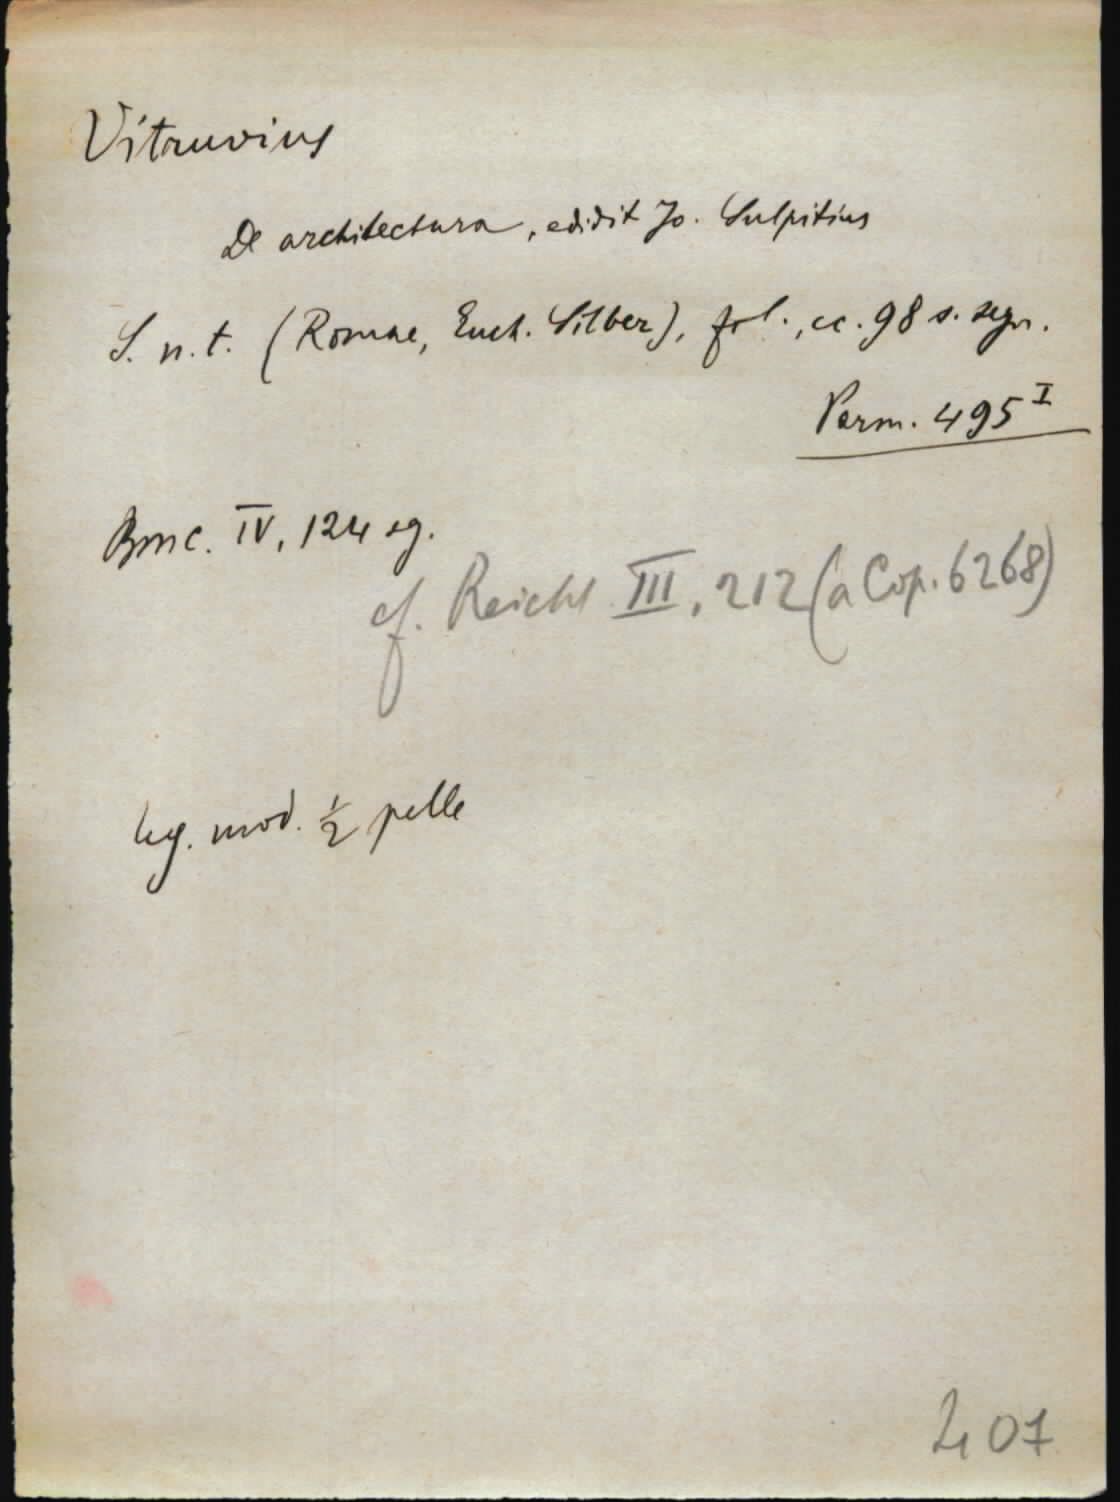 Vitruvius
De architectura, edidit Jo. Sulpitius
S. n. t. (Romae, Euch. Silber), fol., cc. 98 s. segn.
Parm. 495 I
BMC. IV, 124 sg.
cf. Reichl III, 212 (a Cop. 6268)
leg. mod. ½ pelle
407